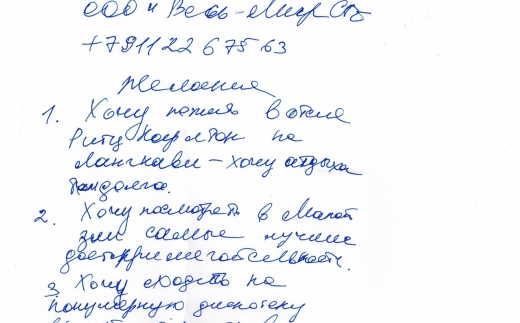 ООО "Весь-Мир СПб
+79112267563
Желания
1. Хочу пожить в отеле
Ритц Карлтон на
Лангкави - хочу отдыха
Тандолга.
2. Хочу посмотреть в Малай
зии самые лучшие
достопримечательности.
3. Хочу сходить на
популярную дискотеку